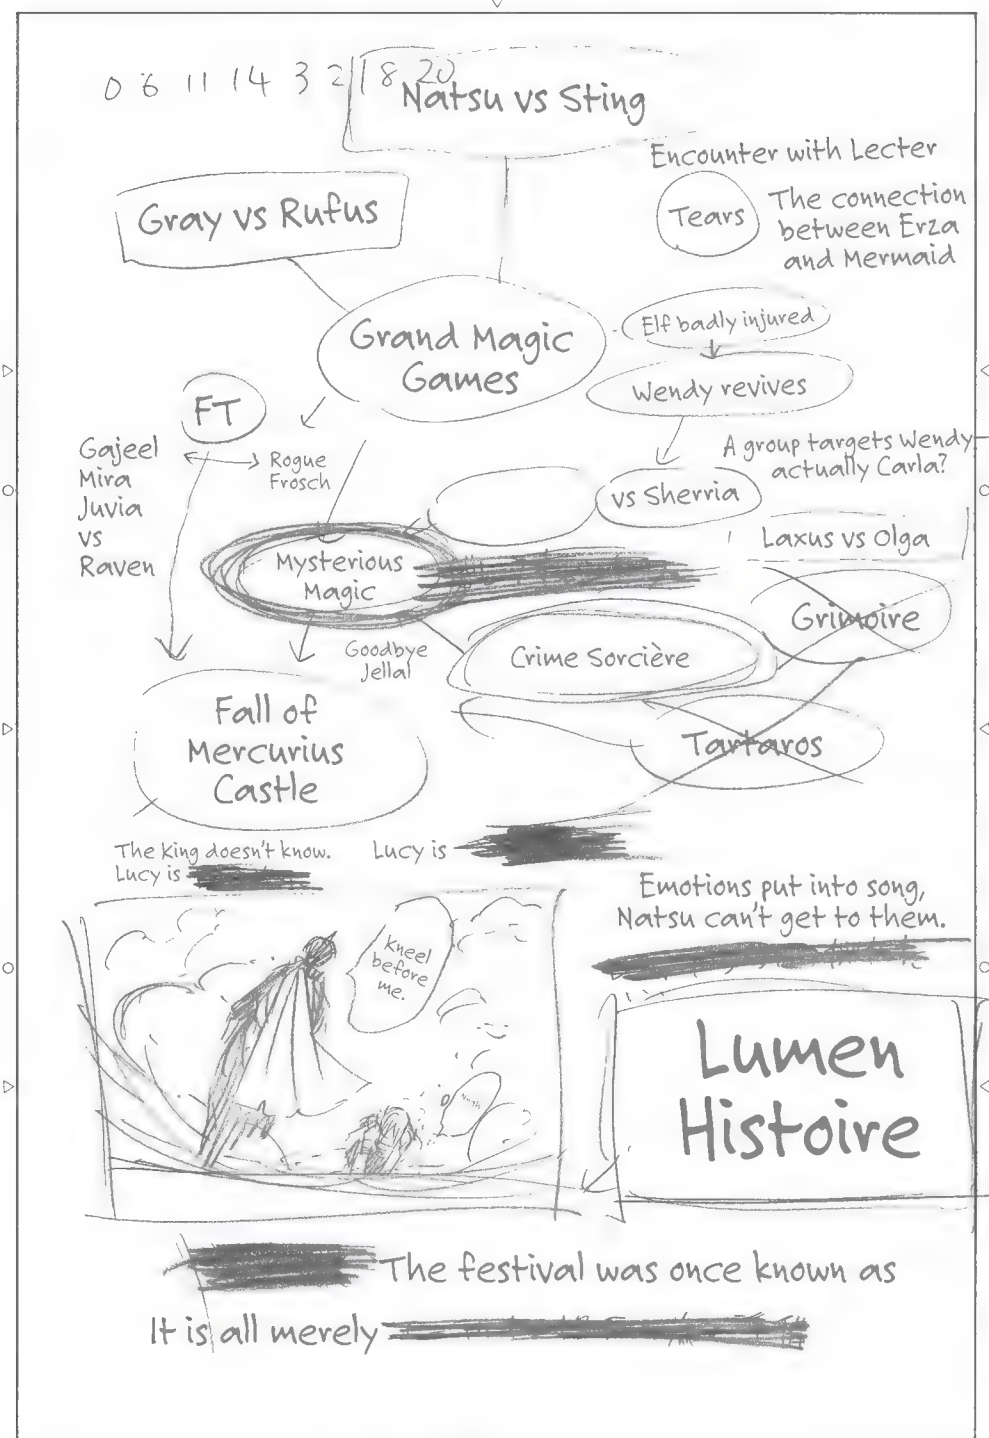 0 6 11 14 3 2 18 20
Natsu vs Sting
Encounter with Lecter
Tears
The connection
between Erza
and Mermaid
Gray vs Rufus
Grand Magic
Games
Elf badly injured
Wendy revives
FT
Gajeel
Mira
Juvia
vs
Raven
Rogue
Frosch
A group targets Wendy
actually Carla?
vs Sherria
Laxus vs Olga
Mysterious
Magic
Grimoire
Goodbye
Jellal
Crime Sorcière
Fall of
Mercurius
Castle
Tartaros
The king doesn't know.
Lucy is
Lucy is
Emotions put into song,
Natsu can't get to them.
Kneel
before
me.
Lumen
Histoire
The festival was once known as
It is all merely